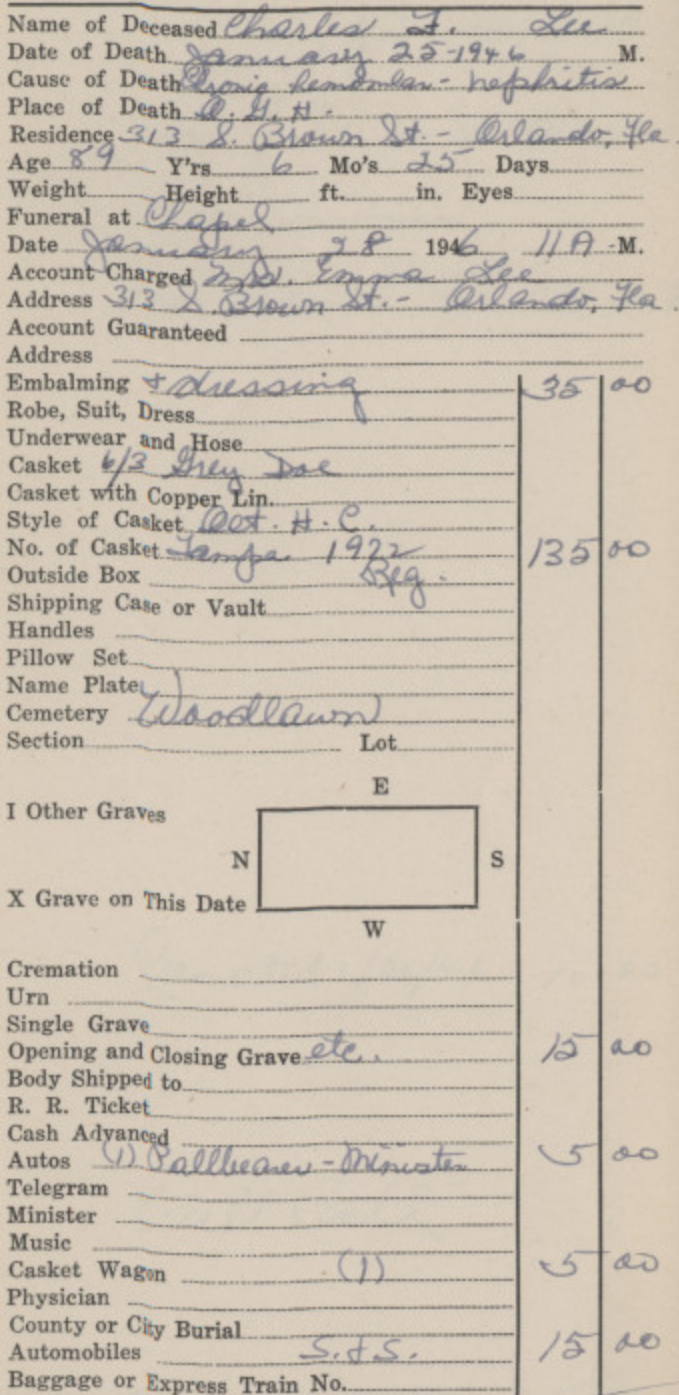 Name of Deceased Charles F. Lee
Date of Death January 25-1946 M.
Cause of Death Chronic - nephritis
Place of Death O. G. H.
Residence 313 S. Brown St. - Orlando, Fla.
Age 89 Y'rs 6 Mo's 25 Days
Weight Height ft. in. Eyes
Funeral at Chapel
Date January 28 1946 11 A M.
Account Charged Mrs. Emma Lee
Address 313 S. Brown St. - Orlando, Fla.
Account Guaranteed
Address
Embalming & dressing 35 00
Robe, Suit, Dress
Underwear and Hose
Casket 6/3 Grey Doe
Casket with Copper Lin.
Style of Casket Oct. H. C.
No. of Casket Tampa 1922 135 00
Outside Box Reg.
Shipping Case or Vault
Handles
Pillow Set
Name Plate
Cemetery Woodlawn
Section Lot
E
I Other Graves
N S
X Grave on This Date
W
Cremation
Urn
Single Grave
Opening and Closing Grave etc. 15 00
Body Shipped to
R. R. Ticket
Cash Advanced
Autos (1) Pallbearer - Minister 5 00
Telegram
Minister
Music
Casket Wagon (1) 5 00
Physician
County or City Burial
Automobiles S. & S. 15 00
Baggage or Express Train No.